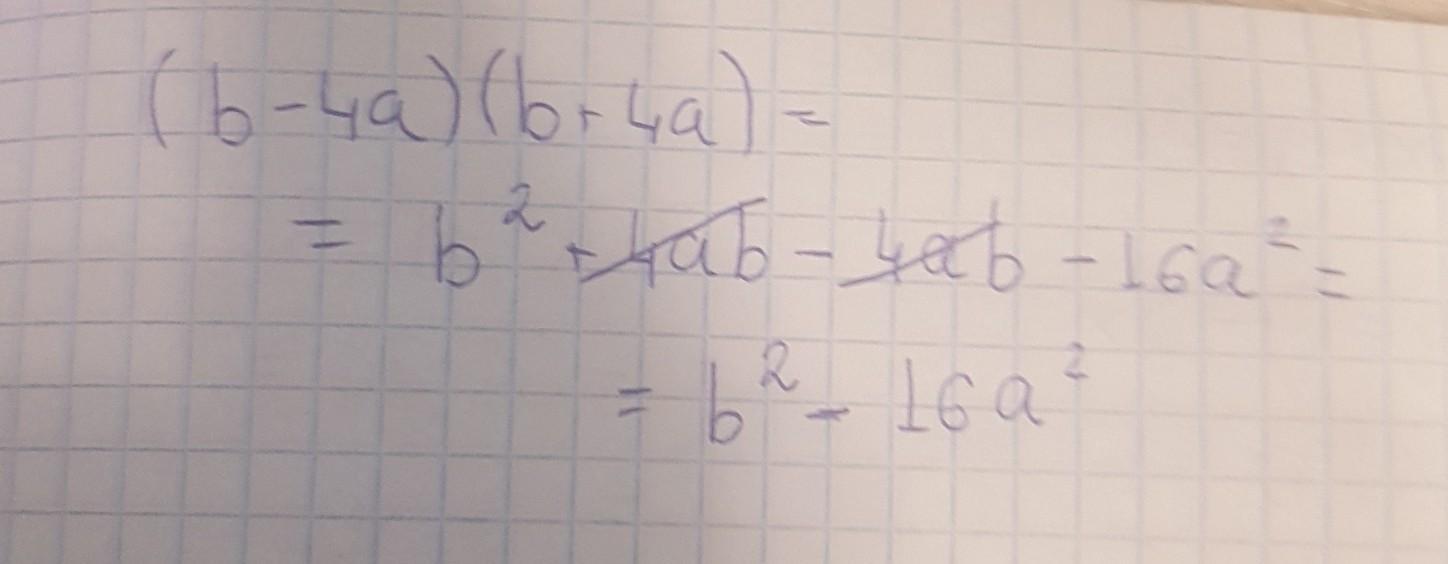 (b-4a)(b+4a)=
= b² + 4ab - 4ab - 16a² =
= b² - 16a²